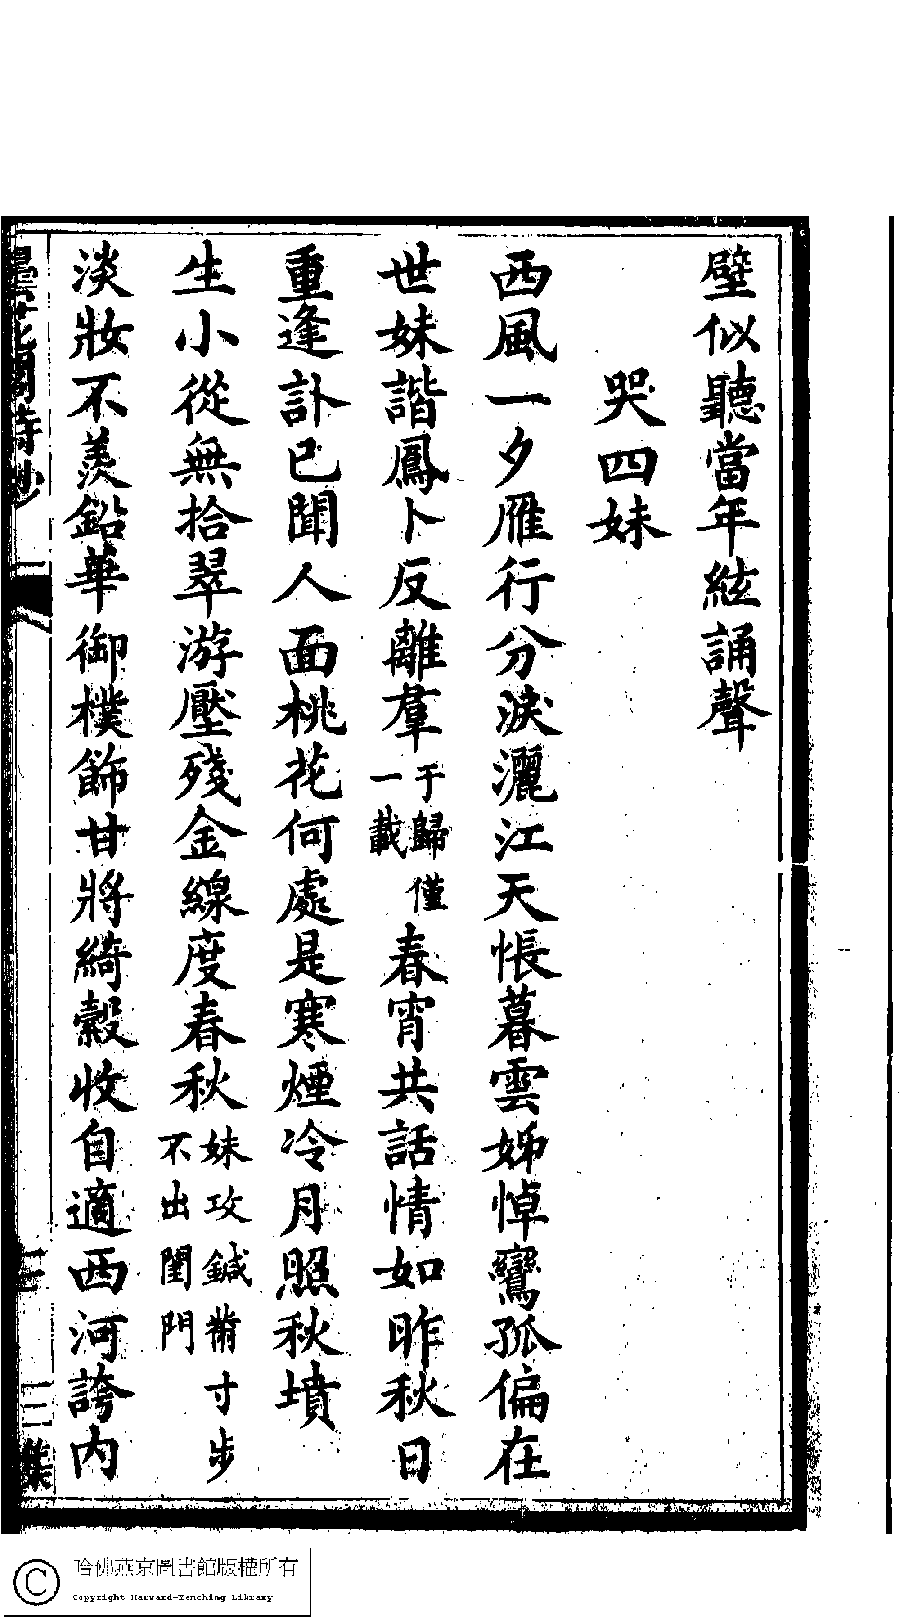 壁似聽當年絃誦聲
哭四妹
西風一夕雁行分淚灑江天悵暮雲姊悼鸞孤偏在
世妹諧鳳卜反離羣于歸僅一載春宵共話情如昨秋日
重逢訃已聞人面桃花何處是寒煙冷月照秋墳
生小從無拾翠游壓殘金線度春秋妹攻鍼黹寸步不出閨門
淡妝不羨鉛華御樸飾甘將綺縠收自適西河誇內
曇花閣詩鈔
二集
哈佛燕京圖書館版權所有
Copyright Harvard-Yenching Library